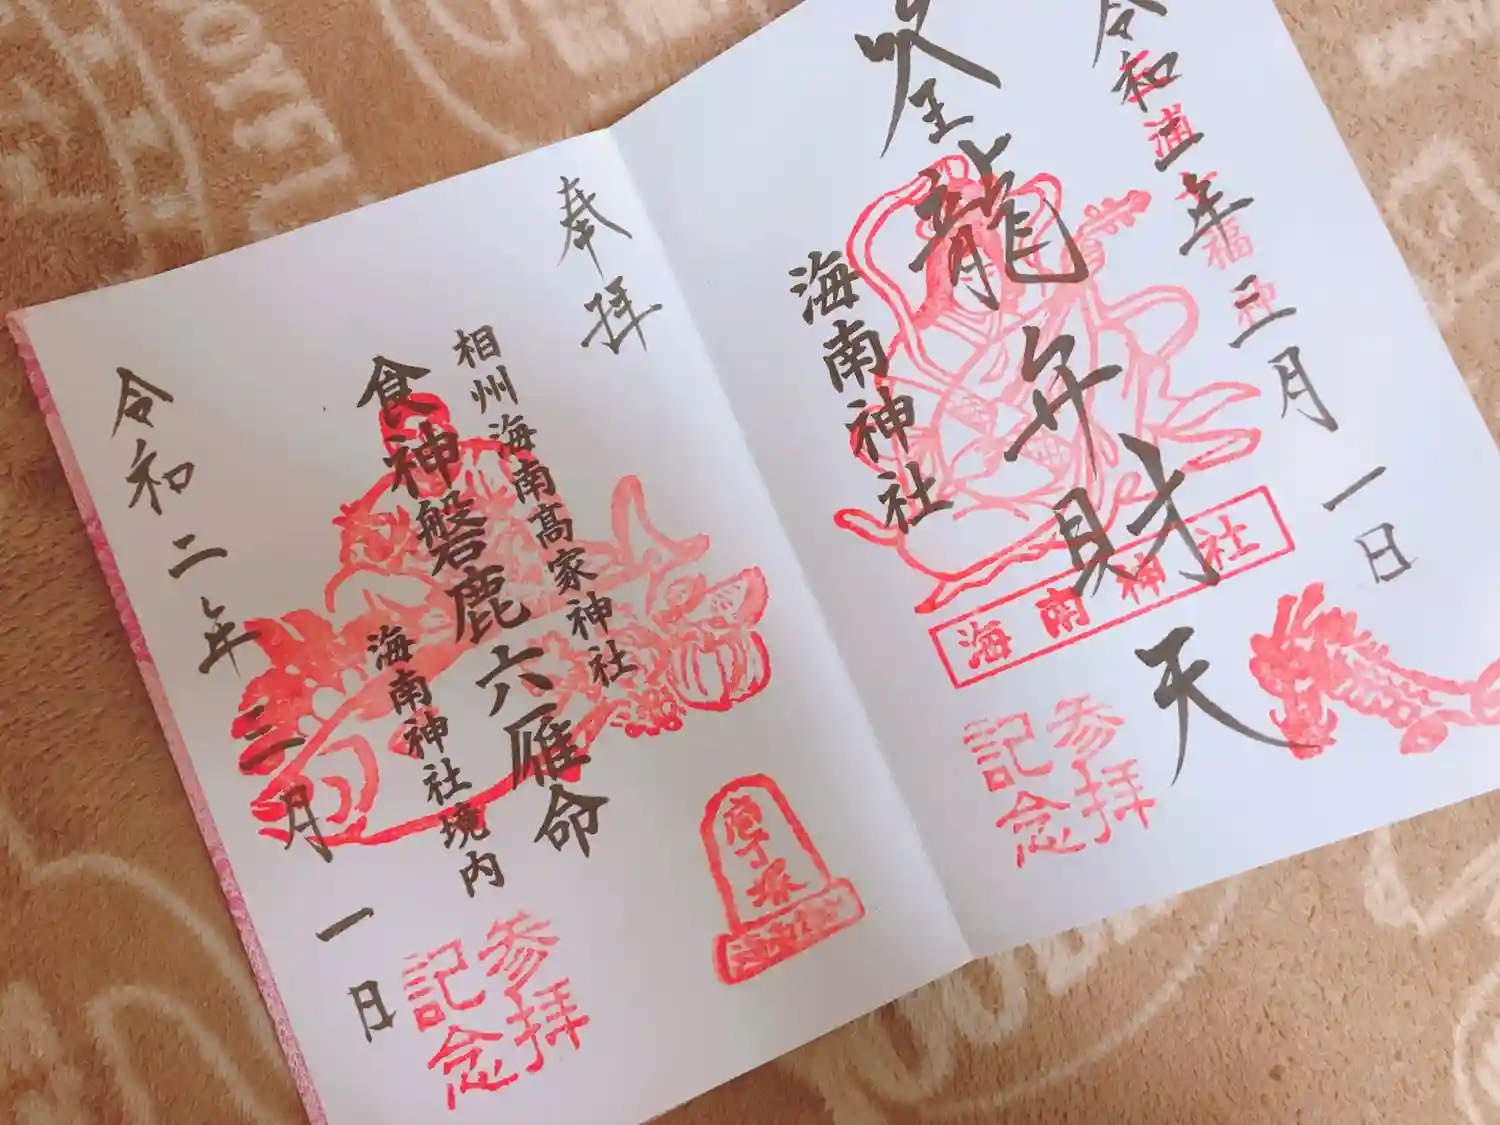 令和二年三月一日
龍弁財天
海南神社
海南神社
参拝
記念
奉拝
相州海南高家神社
食神磐鹿六雁命
海南神社境内
令和二年三月一日
庖丁塚
参拝
記念